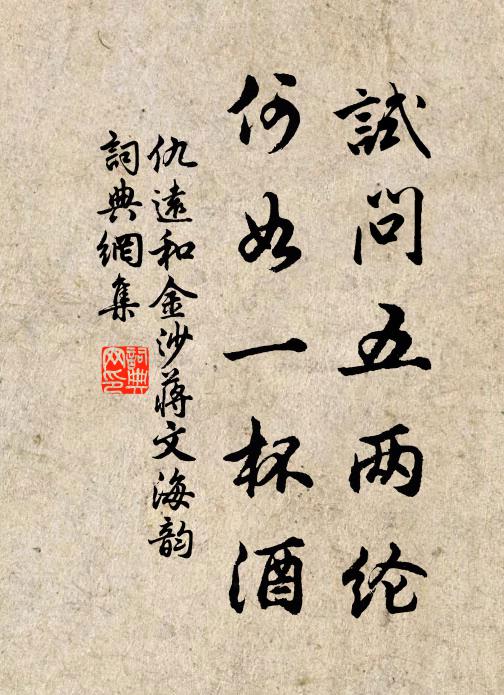 試問五两纶
何如一杯酒
仇遠和金沙蔣文海韵
詞典網集
詞典
网印